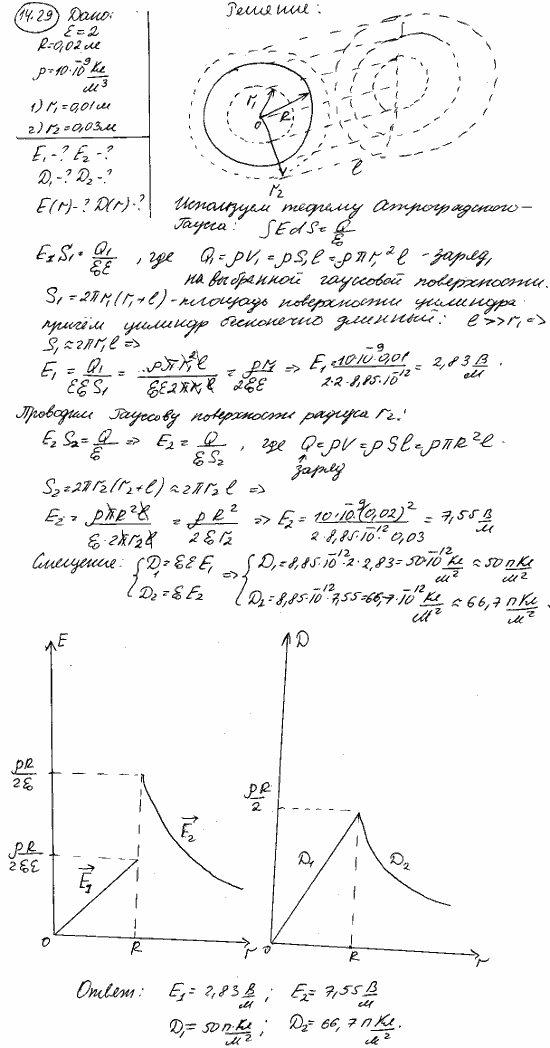 14.29 Дано:
ε=2
R=0,02м
ρ=10·10⁻⁹ Кл/м³
1) r₁=0,01м
2) r₂=0,03м
E₁-? E₂-?
D₁-? D₂-?
E(r)-? D(r)-?
Решение:
r₁ R
O
r₂
l
Используем теорему Остроградского-
Гаусса: ∫EdS=Q/ε₀
E₁S₁=Q₁/εε₀, где Q₁=ρV₁=ρS₁l=ρπr₁²l -заряд,
на выбранной гауссовой поверхности.
S₁=2πr₁(r₁+l)-площадь поверхности цилиндра
причём цилиндр бесконечно длинный: l>>r₁ =>
S₁≈2πr₁l =>
E₁=Q₁/εε₀S₁=ρπr₁²l/εε₀2πr₁l=ρr₁/2εε₀ => E₁=10·10⁻⁹·0,01/2·2·8,85·10⁻¹²=2,83 В/м.
Проводим Гауссову поверхности радиуса r₂:
E₂S₂=Q/ε₀ => E₂=Q/ε₀S₂, где Q=ρV=ρSl=ρπR²l.
заряд
S₂=2πr₂(r₂+l)≈2πr₂l =>
E₂=ρπR²l/ε₀·2πr₂l=ρR²/2ε₀r₂ => E₂=10·10⁻⁹·(0,02)²/2·8,85·10⁻¹²·0,03=7,55 В/м
Смещение: {D₁=ε₀εE₁ => {D₁=8,85·10⁻¹²·2·2,83=50·10⁻¹² Кл/м²≈50 пКл/м²
D₂=ε₀E₂ D₂=8,85·10⁻¹²·7,55=66,7·10⁻¹² Кл/м²≈66,7 пКл/м².
E D
ρR/2ε₀
ρR/2
E₂
ρR/2εε₀
E₁
D₁ D₂
0 R r 0 R r
Ответ: E₁=2,83 В/м; E₂=7,55 В/м
D₁=50 пКл/м²; D₂=66,7 пКл/м².